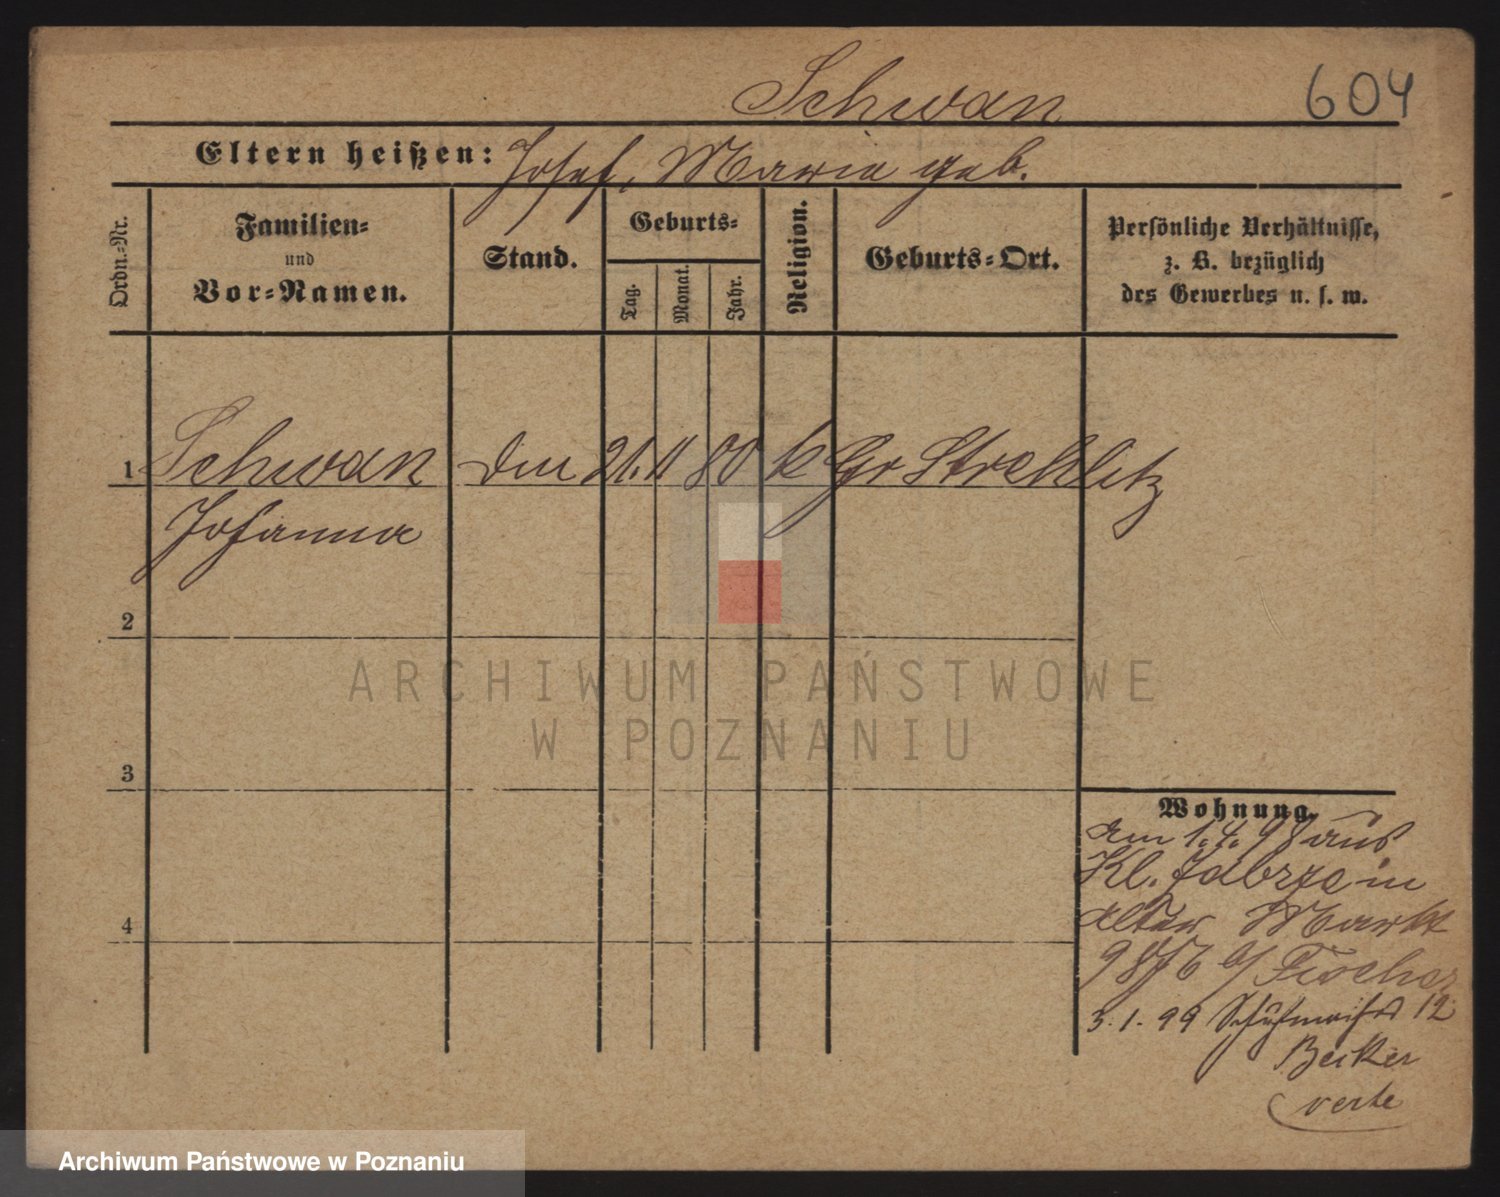 Schwan 604
Eltern heißen: Josef, Maria geb.
Ordn.-Nr.
Familien-
und
Vor-Namen.
Stand.
Geburts-
Tag.
Monat.
Jahr.
Religion.
Geburts-Ort.
Persönliche Verhältnisse,
z. B. bezüglich
des Gewerbes u. s. w.
1 Schwan 21. 11 80 k Gr Strehlitz
Johanna
2
3
4
Wohnung.
am 1. 4. 98 aus
Kl. Zabrze in
Alter Markt
b/ Fischer
3. 1. 99 12
Becker
verte
ARCHIWUM PAŃSTWOWE
W POZNANIU
Archiwum Państwowe w Poznaniu